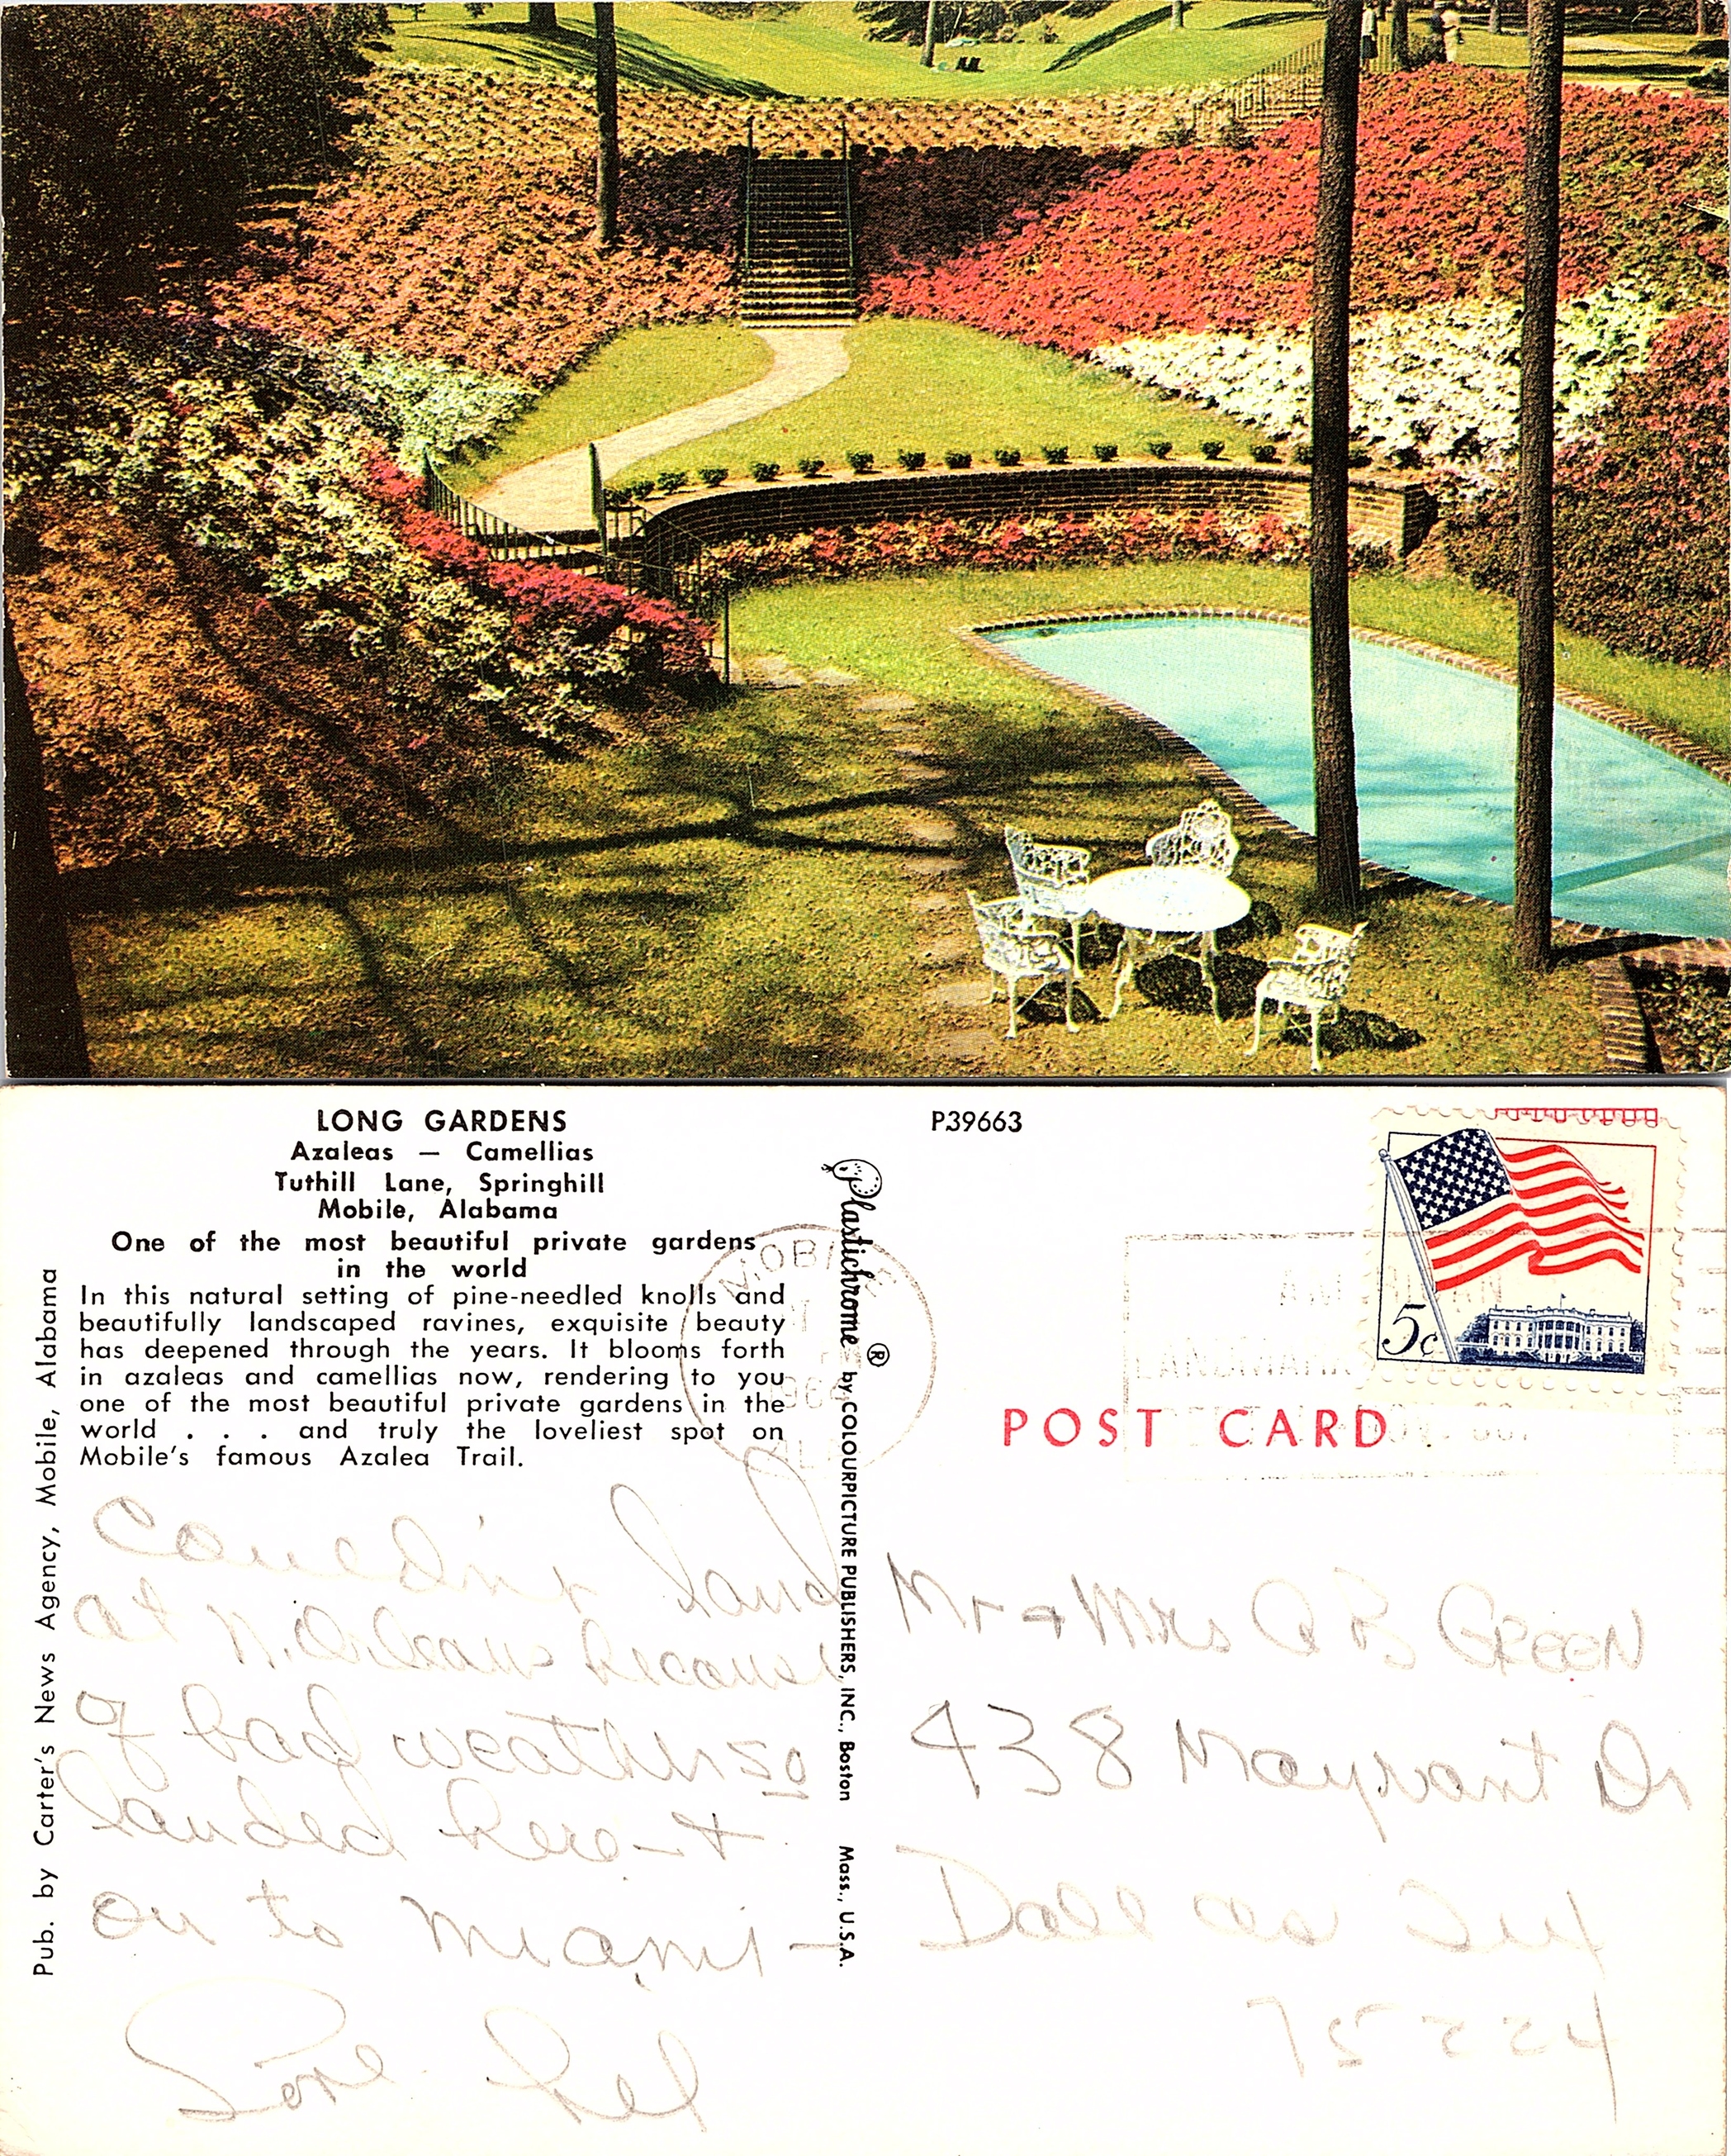 LONG GARDENS
Azaleas — Camellias
Tuthill Lane, Springhill
Mobile, Alabama
One of the most beautiful private gardens
in the world
In this natural setting of pine-needled knolls and
beautifully landscaped ravines, exquisite beauty
has deepened through the years. It blooms forth
in azaleas and camellias now, rendering to you
one of the most beautiful private gardens in the
world . . . and truly the loveliest spot on
Mobile's famous Azalea Trail.
Pub. by Carter's News Agency, Mobile, Alabama
Couldn't land
at N. Orleans because
of bad weather so
landed here - +
on to Miami -
Love
Plastichrome ® by COLOURPICTURE PUBLISHERS, INC., Boston Mass., U.S.A.
P39663
MOBILE
5c
POST CARD
Mr + Mrs O B GREEN
438 Mayrant Dr
Dallas Tex
75224